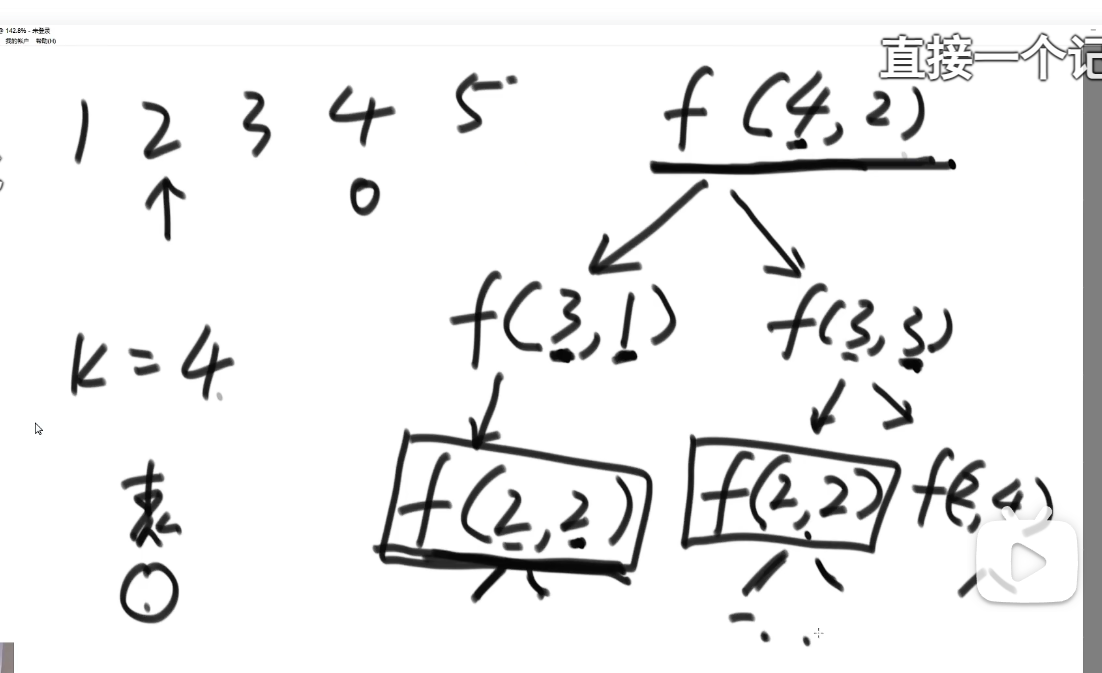 142.8% - 未登录
我的帐户 帮助(H)
直接一个记
1 2 3 4 5
f(4,2)
↑ 0
f(3,1) f(3,3)
K = 4
f(2,2) f(2,2) f(2,4)
表